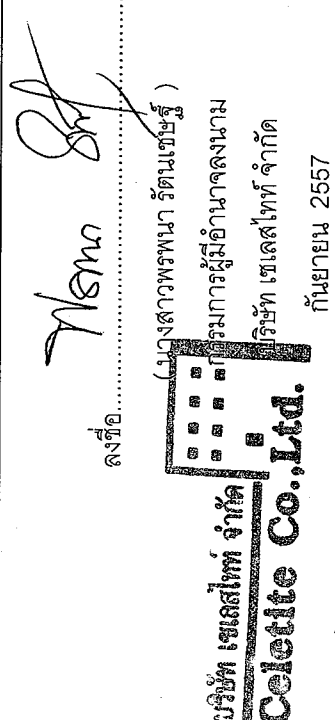 ลงชื่อ
(นางสาวพรพนา รัตนเชษฐ์ )
กรรมการผู้มีอำนาจลงนาม
บริษัท เซเลสไทท์ จำกัด
กันยายน 2557
บริษัท เซเลสไทท์ จำกัด
Celetite Co.,Ltd.